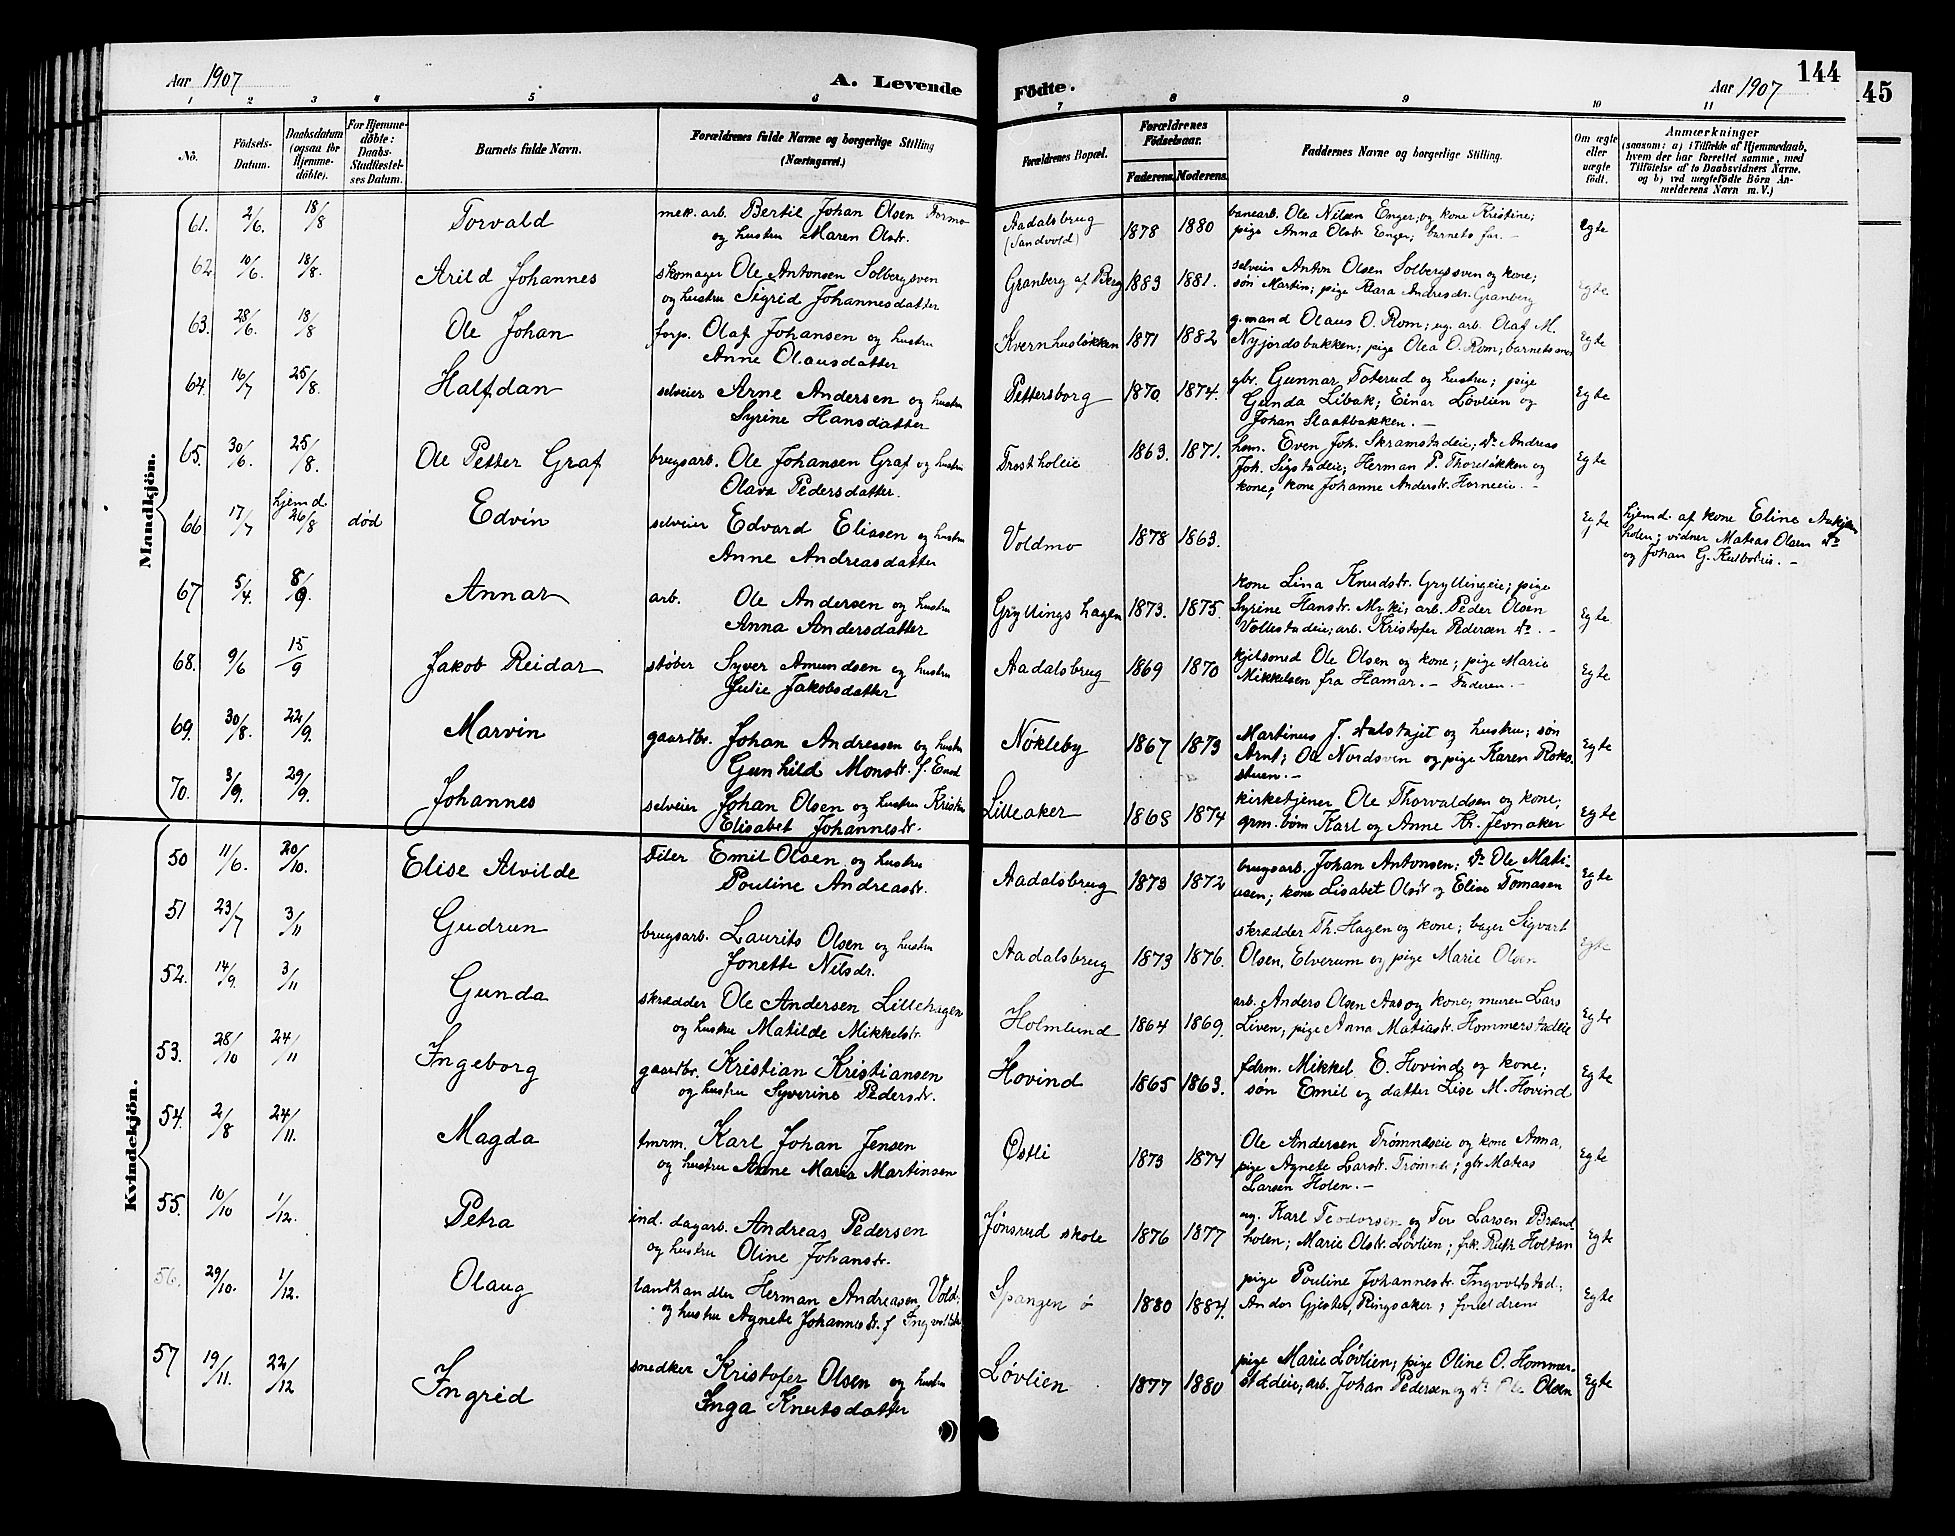 Aar 1907
A. Levende
Födte.
Aar 1907
144
45
1 2 3 4 5 6 7 8 9 10 11
No.
Födsels-Datum.
Daabsdatum (ogsaa for Hjemmedöbte).
For Hjemmedöbte: Daabs-Stadfæstelses Datum.
Barnets fulde Navn.
Forældrenes fulde Navne og borgerlige Stilling (Næringsvei.)
Forældrenes Bopæl.
Forældrenes Födselsaar.
Faderens. Moderens.
Faddernes Navne og borgerlige Stilling.
Om ægte eller uægte födt.
Anmærkninger
(saasom: a) i Tilfælde af Hjemmedaab, hvem der har forrettet samme, med Tilföielse af to Daabsvidners Navne, og b) ved uægtefödte Börn Anmelderens Navn m. V.)
Mandkjön.
61. 2/6. 18/8 Torvald mek. arb. Bertil Johan Olsen Formo
og hustru Maren Olsdr. Aadalsbrug (Sandvold) 1878 1880 banearb. Ole Nilsen Enger; og kone Kristine;
pige Anna Olsdr Enger; barnets far. - Egte
62. 10/6. 18/8. Arild Johannes skomager Ole Antonsen Solbergsven
og hustru Sigrid Johannesdatter Granberg af Berg 1883 1881. selveier Anton Olsen Solbergsven og kone;
søn Martin; pige Klara Andresdr. Granberg Egte
63. 28/6. 18/8 Ole Johan forp. Olaf Johansen og hustru
Anne Olausdatter Kvernhusløkken 1871 1882 g.mand Olaus O. Rom; ug. arb. Olaf M.
Nyjordsbakken; pige Olea O. Rom; barnets mor Egte
64. 16/7 25/8. Halfdan selveier Arne Andersen og hustru
Syrine Hansdatter Pettersborg 1870 1874. gbr. Gunnar Toterud og hustru; pige
Gunda Libak; Einar Løvlien og
Johan Slaatbakken. - Egte
65. 30/6. 25/8. Ole Petter Graf brugsarb. Ole Johansen Graf og hustru
Olava Pedersdatter. Trostholeie 1863. 1871. hsm. Even Joh. Skramstadeie; do Andreas
Joh. Sigstadeie; Herman P. Thoreløkken og
kone; kone Johanne Andersdr. Horneeie. - Egte
66 17/7 hjemd. 26/8 død Edvin selveier Edvard Eliasen og hustru
Anne Andreasdatter Voldmo 1878 1863. Egte hjemd. af kone Eline
holen; vidner Matias Olsen do
og Johan G.
67 5/4. 8/9. Annar arb. Ole Andersen og hustru
Anna Andersdatter Gryllingshagen 1873. 1875. kone Lina Knudsdr. Gryllingeie; pige
Syrine Hansdr. Myki; arb. Peder Olsen
Vollestadeie; arb. Kristofer Pedersen do. - Egte.
68. 9/6 15/9 Jakob Reidar støber Syver Amundsen og hustru
Julie Jakobsdatter Aadalsbrug 1869 1870 kjelsmed Ole Olsen og kone; pige Marie
Mikkelsen fra Hamar. - Faderen. - Egte
69. 30/8. 22/9. Marvin gaardbr. Johan Andreassen og hustru
Gunhild Monsdr. f. Nökleby 1867 1873 Martinus J. og hustru; søn
Arnt; Ole Nordsven og pige Karen Roko
stuen. - Egte
70. 3/9. 29/9. Johannes selveier Johan Olsen og hustru Kristin
Elisabet Johannesdr. Lilleaker 1868 1874 kirketjener Ole Thorvaldsen og kone;
grm. børn Karl og Anne Kr. Jevnaker Egte
Kvindekjön.
50 11/6. 20/10. Elise Alvilde filer Emil Olsen og hustru
Pouline Andreasdr. Aadalsbrug 1873 1872 brugsarb. Johan Antonsen; do Ole Mati-
usen; kone Lisabet Olsdr og Elise Tomasen Egte
51 23/7 3/11 Gudrun brugsarb. Laurits Olsen og hustru
Jonette Nilsdr. Aadalsbrug 1873 1876. skrædder Th. Hagen og kone; bager Sigvart
Olsen, Elverum og pige Marie Olsen Egte
52. 14/9. 3/11 Gunda skrædder Ole Andersen Lillehagen
og hustru Matilde Mikkelsdr. Holmlund 1864 1869. arb. Anders Olsen Aas og kone; murer Lars
Liven; pige Anna Matiasdr. Hommerstadeie Egte
53. 28/10 24/11 Ingeborg gaardbr. Kristian Kristiansen
og hustru Syverine Pedersdr. Hovind 1865 1863. fdrm. Mikkel E. Hovind og kone;
søn Emil og datter Lise M. Hovind Egte
54. 2/8 24/11. Magda tmrm. Karl Johan Jensen
og hustru Anne Maria Martinsen Østli 1873 1874 Ole Andersen Trømnæseie og kone Anna,
pige Agnete Larsdr. Trømnes; gbr Matias
Larsen Holen. - Egte
55. 10/10 1/12. Petra ind. dagarb. Andreas Pedersen
og hustru Oline Johansdr. Jønsrud skole 1876 1877 ug. Karl Teodorsen og Tore Larsen Brænd
holen; Marie Olsdr. Løvlien; frk. Ruth Holtan Egte
56. 29/10. 1/12. Olaug landhandler Herman Andreasen Vold;
og hustru Agnete Johannesdr. f. Spangen ö 1880 1884. pige Pouline Johannesdr. Ingvoldstad;
Andor Gjester, Ringsaker; foreldrene Egte
57 19/11. 22/12 Ingrid snedker Kristofer Olsen og hustru
Inga Knutsdatter Løvlien 1877 1880 pige Marie Løvlien; pige Oline O. Hommer-
stadeie; arb. Johan Pedersen og do Ole Olsen Egte